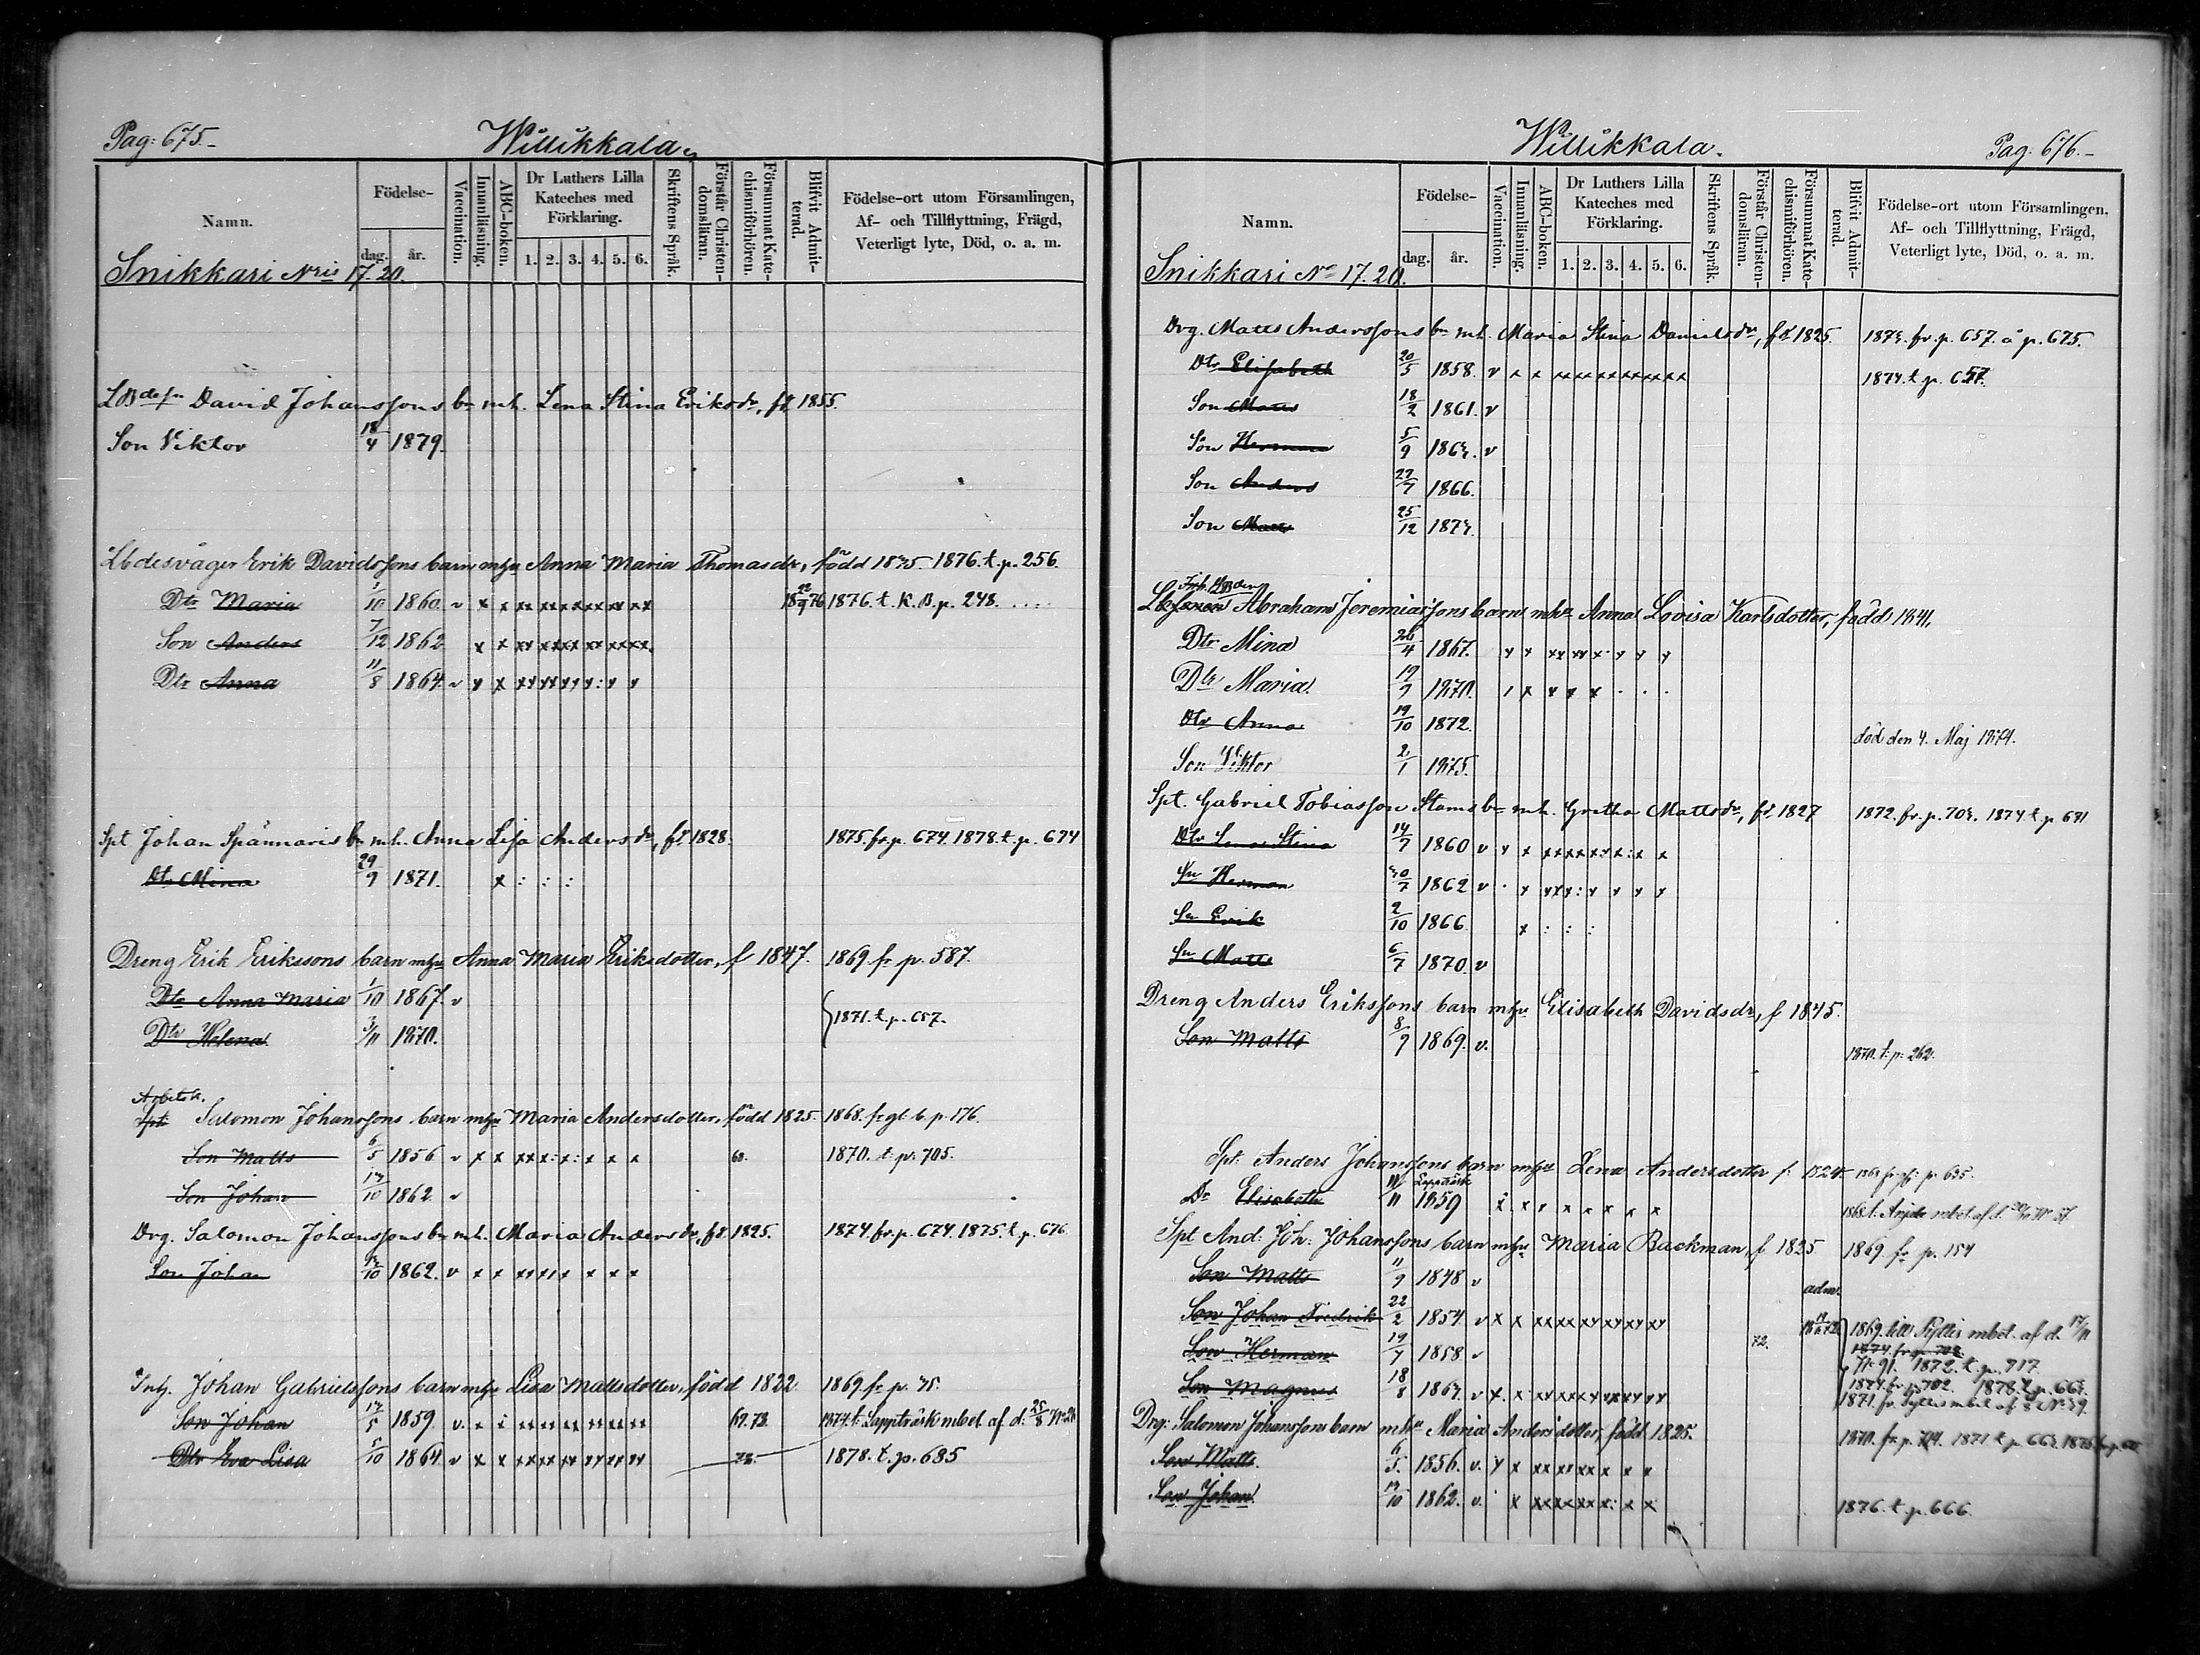 Pag: 675.
Willikkala.
Namn.
Födelse-
dag. år.
Vaccination.
Innanläsning.
ABC-boken.
Dr Luthers Lilla Kateches med Förklaring.
1. 2. 3. 4. 5. 6.
Skriftens Språk.
Förstår Christen-domsläran.
Försummat Kate-chismiförhören.
Blifvit Admit-terad.
Födelse-ort utom Församlingen,
Af- och Tillflyttning, Frägd,
Veterligt lyte, Död, o. a. m.
Snikkari Nris 17. 20.
David Johanssons bn mh. Lena Stina Eriksdr, fd 1855.
Son Viktor 18/4 1879.
Lbdesvåger Erik Davidssons barn mhu Anna Maria Thomasdr, född 1835. 1876. t. p. 256.
Dtr Maria 1/10 1860. v x x xx xx xx xx xx 1876. t. K. B. p. 248.
Son Anders 7/12 1862 x x xx xx xx xx xx
Dtr Anna 11/8 1864. v x x
Spt Johan Spännaris bn mh. Anna Lisa Andersdr, fd 1828. 1875. fr. p. 674. 1878. t. p. 674
Dt. Mina 29/9 1871. x : : :
Dreng Erik Erikssons barn mhu Anna Maria Eriksdotter, f 1847. 1869. fr p. 587.
Dtr Anna Maria 1/10 1867. v
1871. t. p. 657.
Dtr Helena 3/11 1870.
Arbetsk.
Spt Salomon Johanssons barn mhu Maria Andersdotter, född 1825. 1868. fr gl. b. p. 176.
Son Matts 6/5 1856 v x x 1870. t. p. 705.
Son Johan 12/10 1862. v
Drg. Salomon Johanssons bn mh. Maria Andersdr, fd. 1825. 1874. fr. p. 674. 1875. t. p. 676.
Son Johan 12/10 1862. v x x
Inh. Johan Gabrielssons barn mhu Lisa Mattsdotter, född 1822 1869. fr p. 75.
Son Johan 1859. v. 69. 73. 1874. t. Lappträsk mbet af d. 25/8 No 26
Dtr Eva Lisa 5/10 1864. v x x 1878. t. p. 685
Willikkala.
Pag: 676.
Namn.
Födelse-
dag. år.
Vaccination.
Innanläsning.
ABC-boken.
Dr Luthers Lilla Kateches med Förklaring.
1. 2. 3. 4. 5. 6.
Skriftens Språk.
Förstår Christen-domsläran.
Försummat Kate-chismiförhören.
Blifvit Admit-terad.
Födelse-ort utom Församlingen,
Af- och Tillflyttning, Frägd,
Veterligt lyte, Död, o. a. m.
Snikkari No 17. 20.
Drg. Matts Anderssons bn mh. Maria Stina Danielsdr, fd 1825. 1873. fr. p. 657. å p. 675.
Dtr Elisabeth 20/5 1858. v x x xx xx xx xx xx xx 1874. t. p. 657.
Son Matts 18/2 1861. v
Son Herman 5/9 1863. v
Son Anders 27/7 1866.
Son Matts 25/12 1873.
Abraham Jeremiassons barn mhu Anna Lovisa Karlsdotter, född 1841.
Dtr Mina 26/4 1867.
Dtr Maria 19/9 1870.
Dtr Anna 19/10 1872. död den 4. Maj 1874.
Son Viktor 2/1 1875.
Spt. Gabriel Tobiasson Stams bn mh. Gretha Mattsdr, fd. 1827 1872. fr. p. 703. 1874 t. p 691
Dtr Lena Stina 14/7 1860 v
Sn Herman 30/7 1862 v
Sn Erik 2/10 1866. x : : :
Sn Matts 6/7 1870 v
Dreng Anders Erikssons barn mhu Elisabeth Davidsdr, f 1845.
Son Matts 8/9 1869. v. 1870. t. p. 262.
Spt. Anders Johanssons barn mhu Lena Andersdotter f. 1824
Dr Elisabeth 1859 Lappträsk
Spt And: Joh: Johanssons barn mhu Maria Backman, f 1825 1869. fr p. 154
Son Matts 11/9 1848 v
adm.
Son Johan Fredrik 22/2 1854. v x x 1869. till Pyttis mbet. af d. 17/11
1874. fr. p. 702.
Son Herman 19/7 1858 v 72. No 91. 1872. t. p. 717.
Son Magnus 18/8 1863. v 1874. fr. p. 702. 1878. t. p. 663.
Drg: Salomon Johanssons barn mhu Maria Andersdotter, född 1825.
Son Matts. 6/5. 1856. v.
Son Johan. 12/10 1862. v. 1876. t. p. 666.